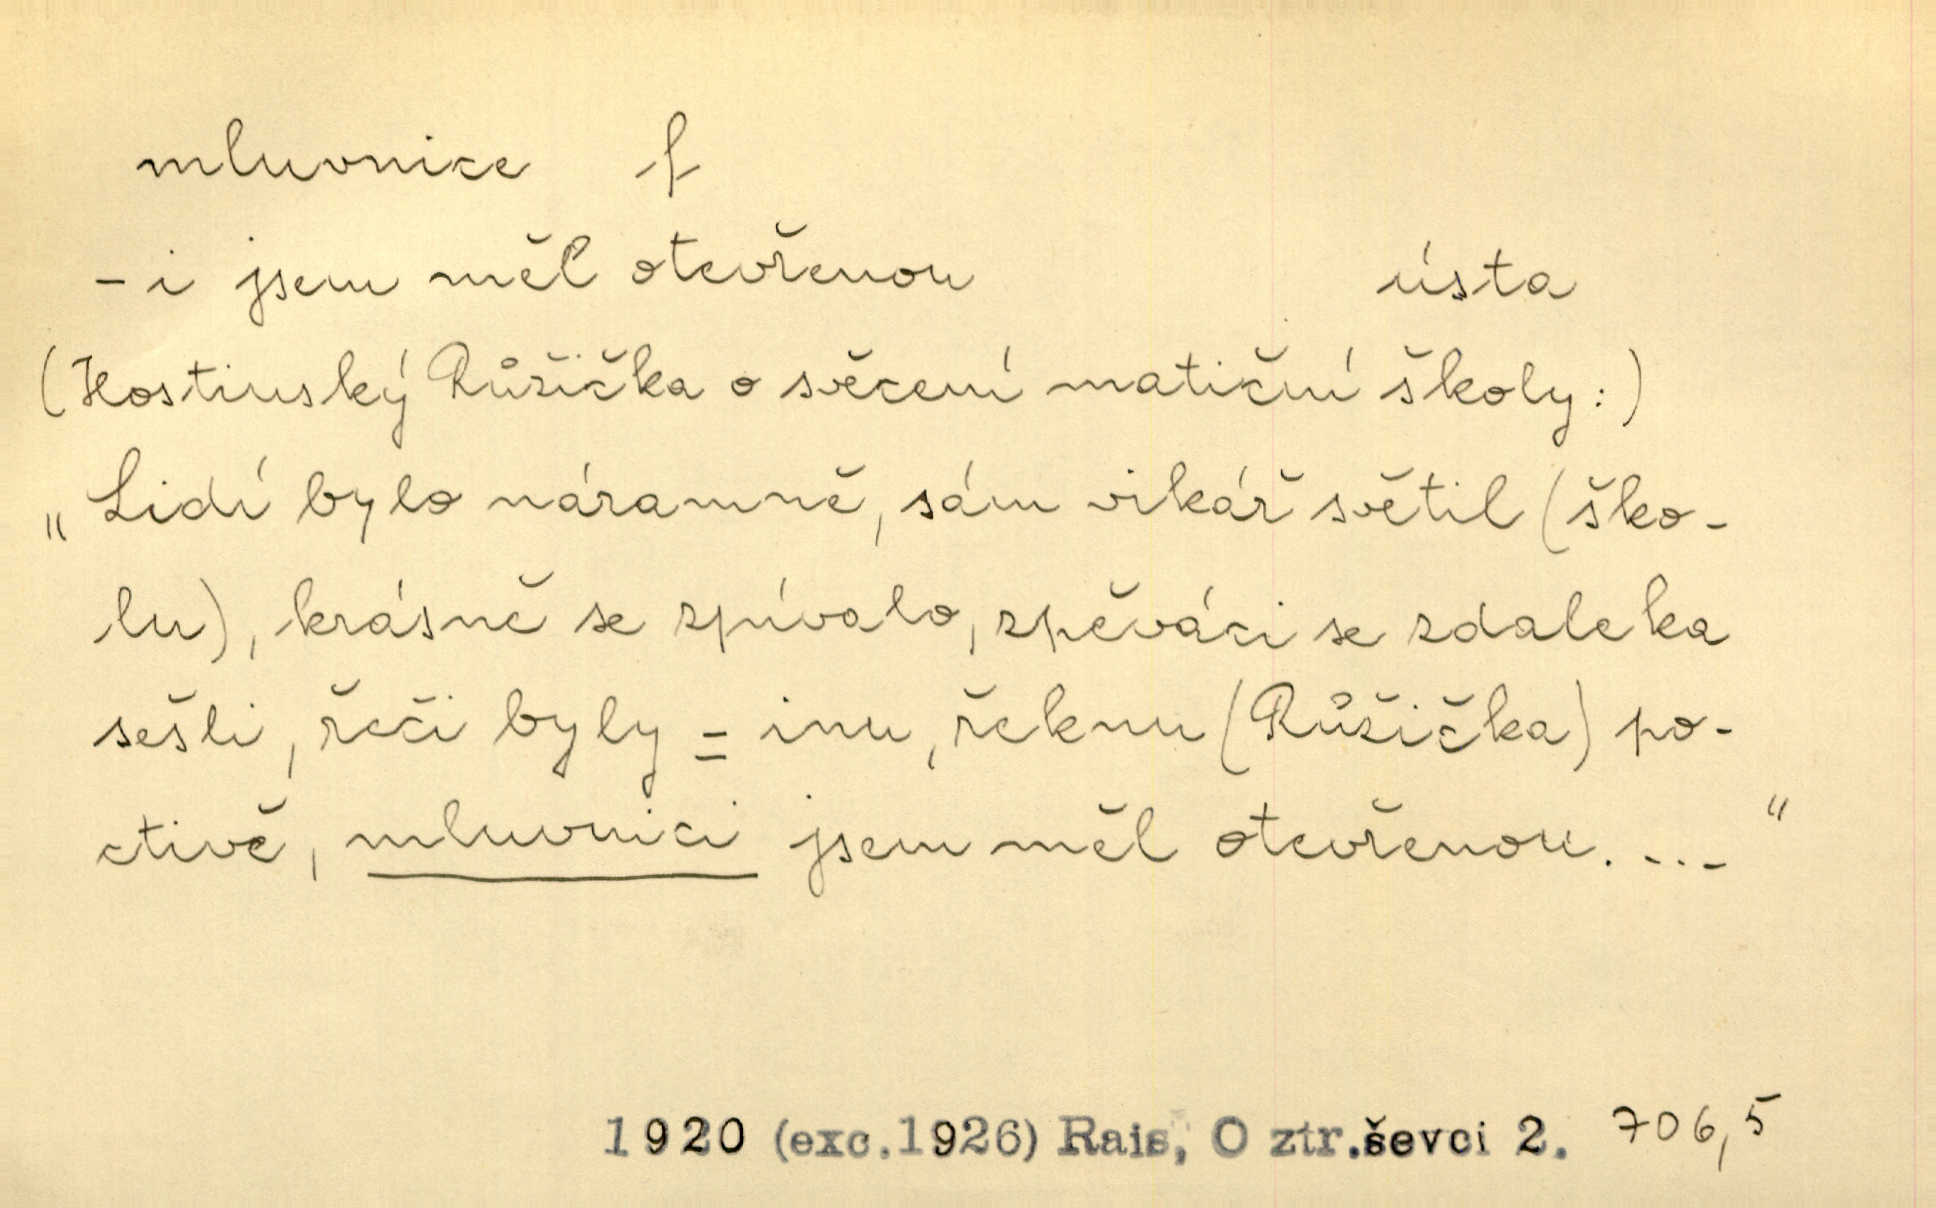 mluvnice f
-i jsem měl otevřenou ústa
(Hostinský Růžička o svěcení matiční školy:)
„Lidí bylo náramně, sám vikář světil (ško-
lu), krásně se zpívalo, zpěváci se zdaleka
sešli, řeči byly = inu, řeknu (Růžička) po-
ctivě, mluvnici jsem měl otevřenou. -..- “
1920 (exc.1926) Rais, O ztr.ševci 2. 706,5